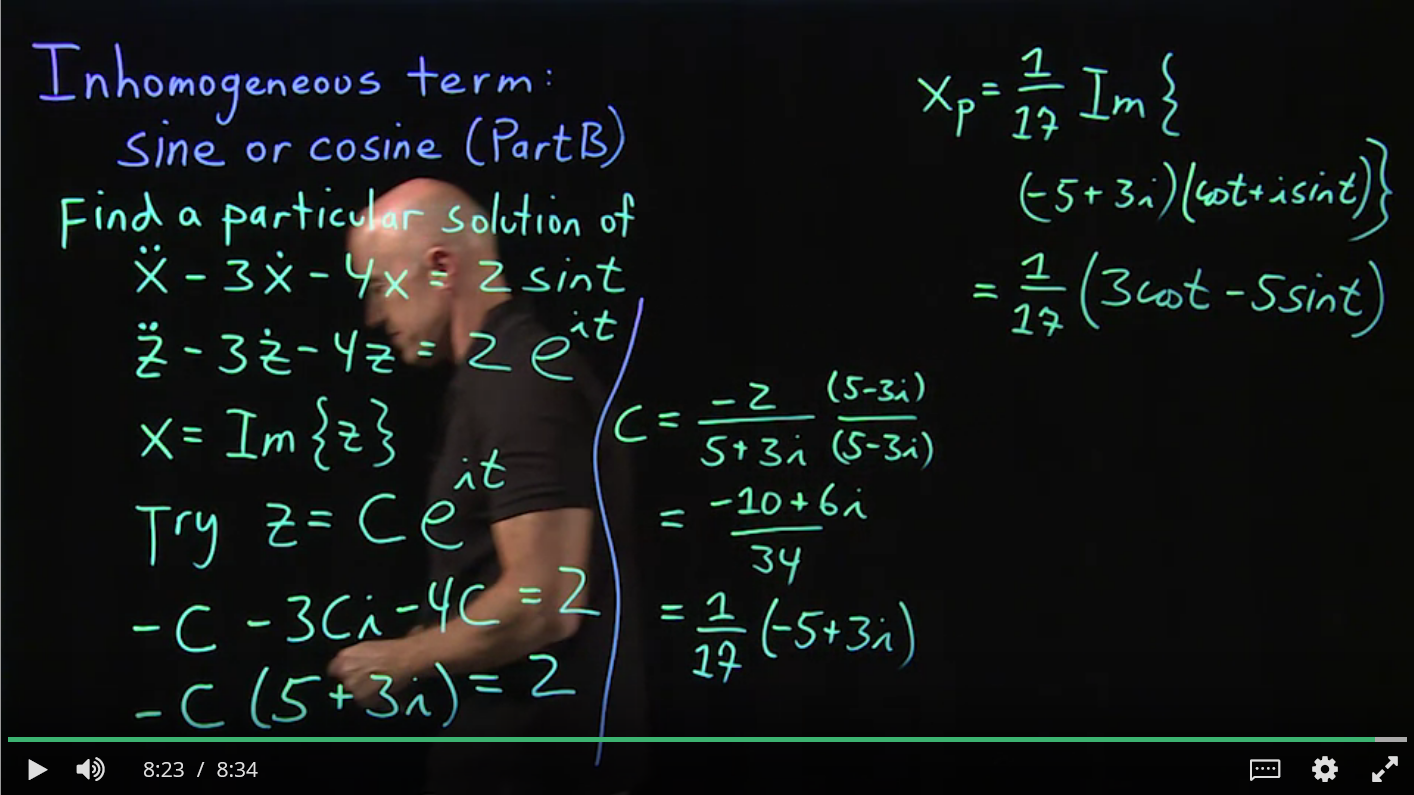 Inhomogeneous term:
sine or cosine (Part B)
Find a particular solution of
ẍ - 3ẋ - 4x = 2 sint
z̈ - 3ż - 4z = 2 e^{it}
x = Im {z}
Try z = C e^{it}
-C - 3Ci - 4C = 2
-C (5 + 3i) = 2
C = \frac{-2}{5+3i} \frac{(5-3i)}{(5-3i)}
= \frac{-10+6i}{34}
= \frac{1}{17} (-5+3i)
x_p = \frac{1}{17} Im {
(-5 + 3i)(cost + i sint)}
= \frac{1}{17} (3cost - 5sint)
8:23 / 8:34